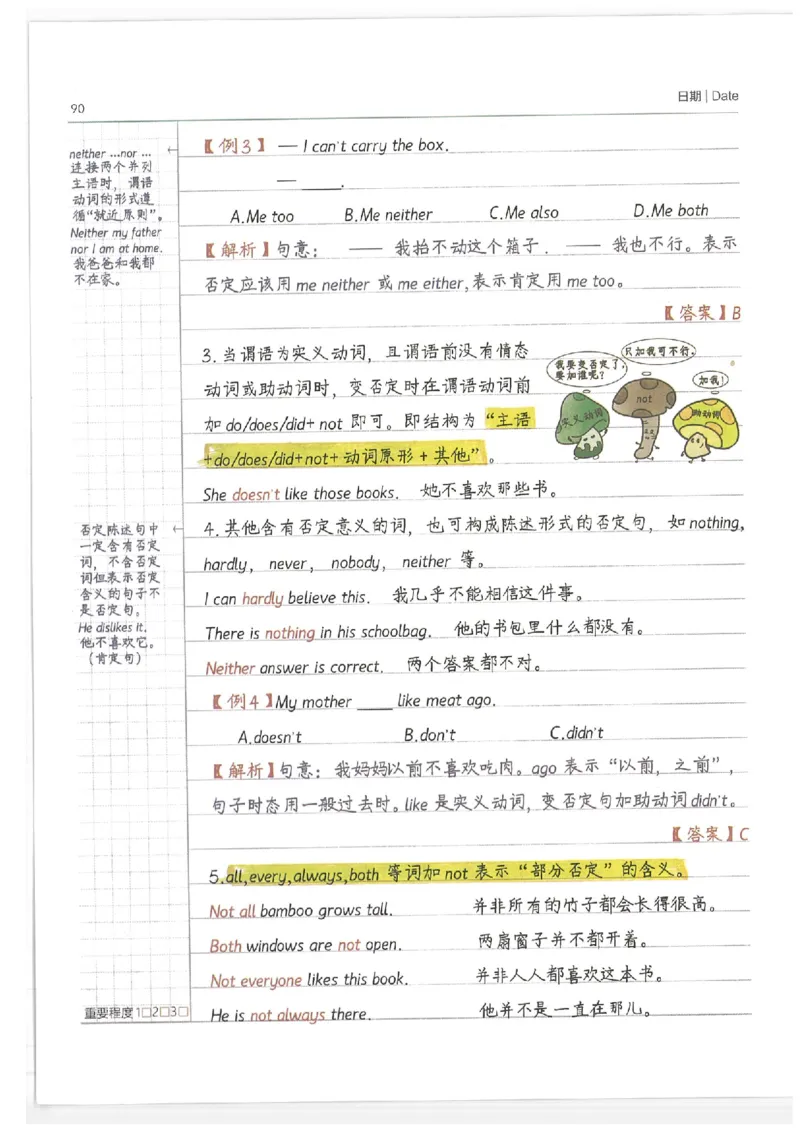 90
日期 | Date
neither ...nor ...
连接两个并列
主语时，谓语
动词的形式遵
循“就近原则”。
Neither my father
nor I am at home.
我爸爸和我都
不在家。
【例3】 — I can't carry the box.
— ____.
A.Me too B.Me neither C.Me also D.Me both
【解析】句意： —— 我抬不动这个箱子. —— 我也不行。表示
否定应该用 me neither 或 me either,表示肯定用 me too。
【答案】B
3.当谓语为实义动词，且谓语前没有情态
动词或助动词时，变否定时在谓语动词前
加 do/does/did+ not 即可。即结构为 “主语
+do/does/did+not+动词原形 + 其他”。
我要变否定了,
要加谁呢?
只加我可不行.
加我!
实义动词
not
助动词
She doesn't like those books. 她不喜欢那些书。
否定陈述句中
一定含有否定
词，不含否定
词但表示否定
含义的句子不
是否定句。
He dislikes it.
他不喜欢它。
（肯定句）
4.其他含有否定意义的词，也可构成陈述形式的否定句，如 nothing,
hardly, never, nobody, neither 等。
I can hardly believe this. 我几乎不能相信这件事。
There is nothing in his schoolbag. 他的书包里什么都没有。
Neither answer is correct. 两个答案都不对。
【例4】My mother ____ like meat ago.
A.doesn't B.don't C.didn't
【解析】句意：我妈妈以前不喜欢吃肉。ago 表示“以前，之前”，
句子时态用一般过去时。like 是实义动词，变否定句加助动词 didn't。
【答案】C
5.all,every,always,both 等词加 not 表示“部分否定”的含义。
Not all bamboo grows tall. 并非所有的竹子都会长得很高。
Both windows are not open. 两扇窗子并不都开着。
Not everyone likes this book. 并非人人都喜欢这本书。
He is not always there. 他并不是一直在那儿。
重要程度 1□2□3□